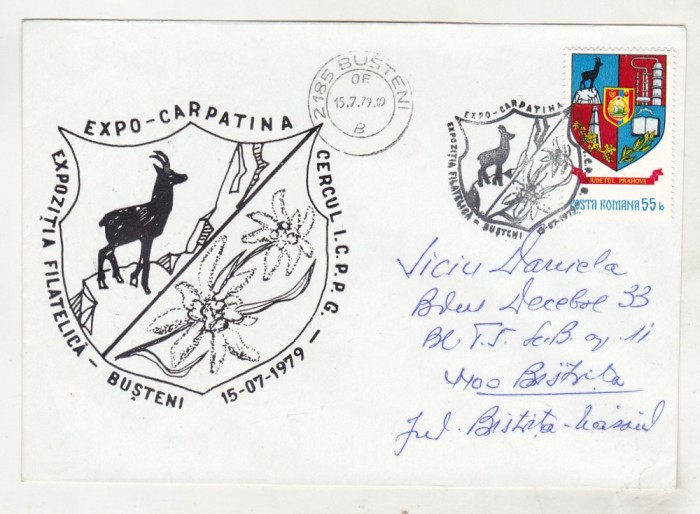 EXPO-CARPATINA
EXPOZIȚIA FILATELICĂ - BUȘTENI
15-07-1979
CERCUL I.C.P.P.G. -
2185 BUSTENI
OF
15.7.79.09
B
EXPO-CARPATINA
EXPOZIȚIA FILATELICĂ - BUȘTENI
15-07-1979
JUDEȚUL PRAHOVA
POSTA ROMANA 55 b
Viciu Daniela
Bdul Decebal 33
Bl T.S. Sc.B. ap. 11
4400 Bistrița
Jud. Bistrița-Năsăud